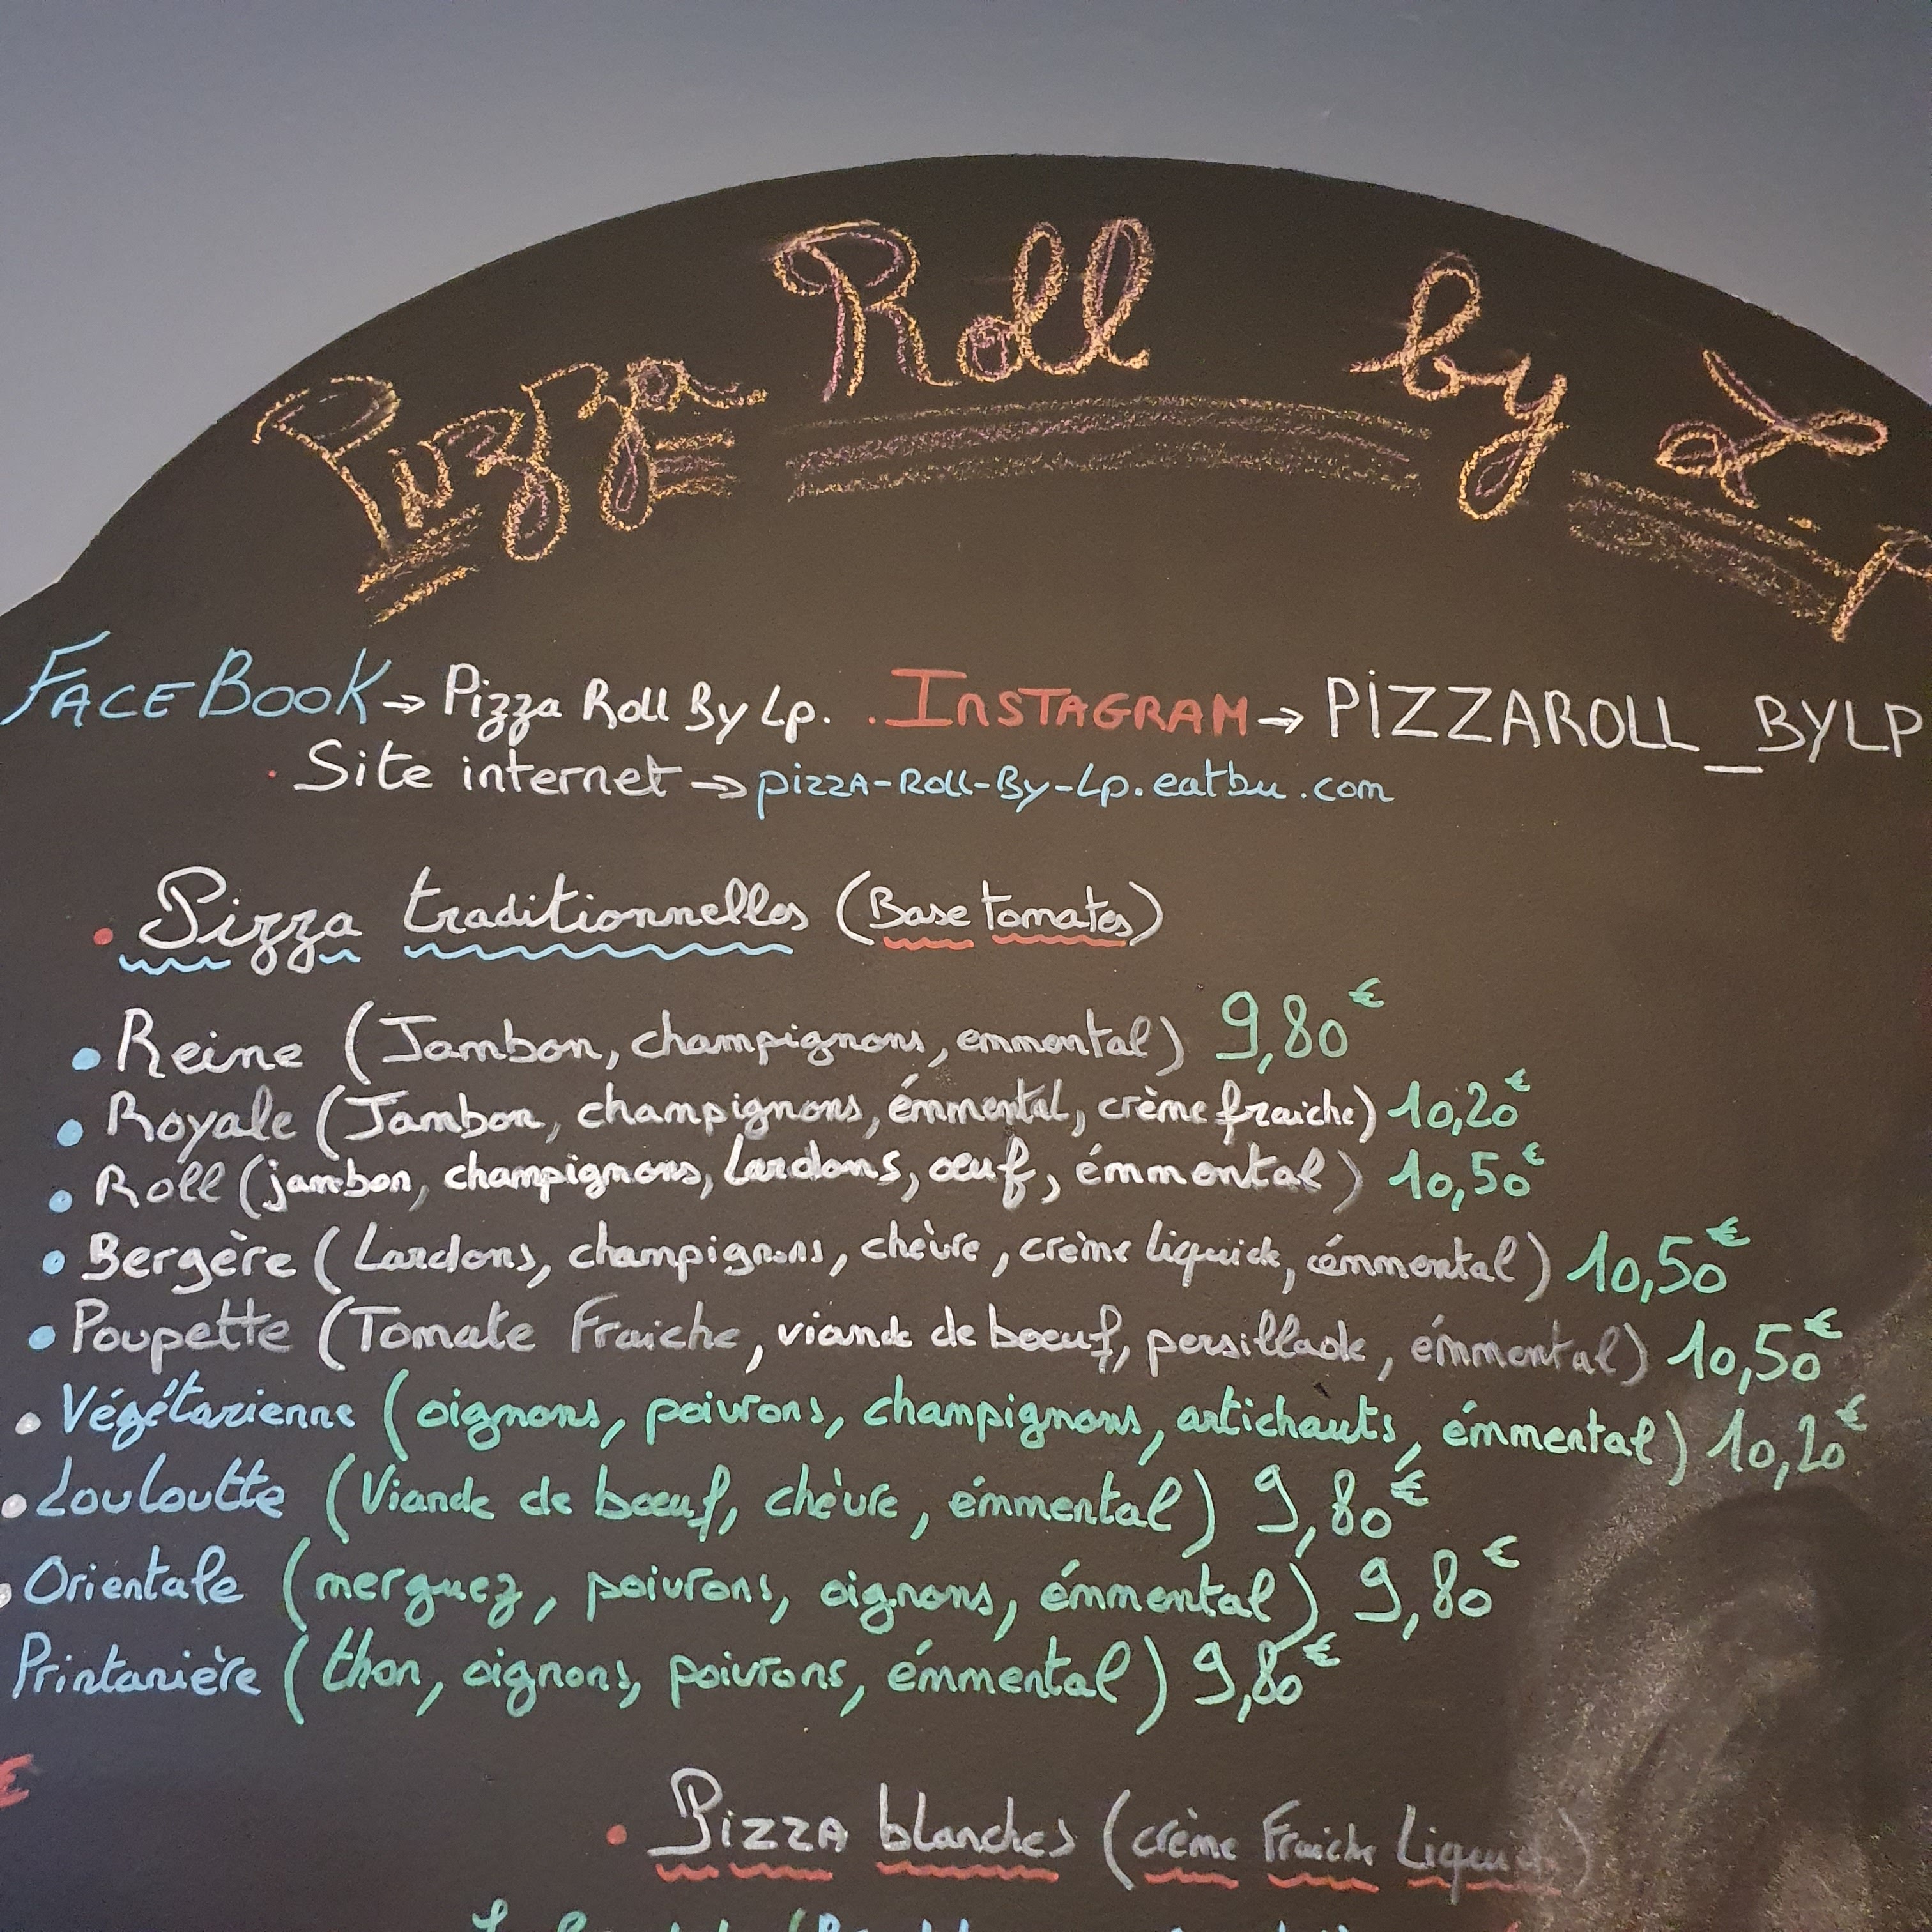 Pizza Roll by L.P
FACEBOOK → Pizza Roll By Lp. . INSTAGRAM → PIZZAROLL_BYLP
. Site internet → pizza-Roll-By-Lp.eatbu.com
• Pizza traditionnelles (Base tomates)
• Reine (Jambon, champignons, emmental) 9,80€
• Royale (Jambon, champignons, émmental, crème fraiche) 10,20€
• Roll (jambon, champignons, lardons, oeuf, émmental) 10,50€
• Bergère (Lardons, champignons, chèvre, crème liquide, émmental) 10,50€
• Poupette (Tomate Fraiche, viande de boeuf, persillade, émmental) 10,50€
• Végétarienne (oignons, poivrons, champignons, artichauts, émmental) 10,20€
• Louloutte (Viande de boeuf, chèvre, émmental) 9,80€
• Orientale (merguez, poivrons, oignons, émmental) 9,80€
Printanière (thon, oignons, poivrons, émmental) 9,80€
€
• Pizza blanches (crème Fraiche Liquide)